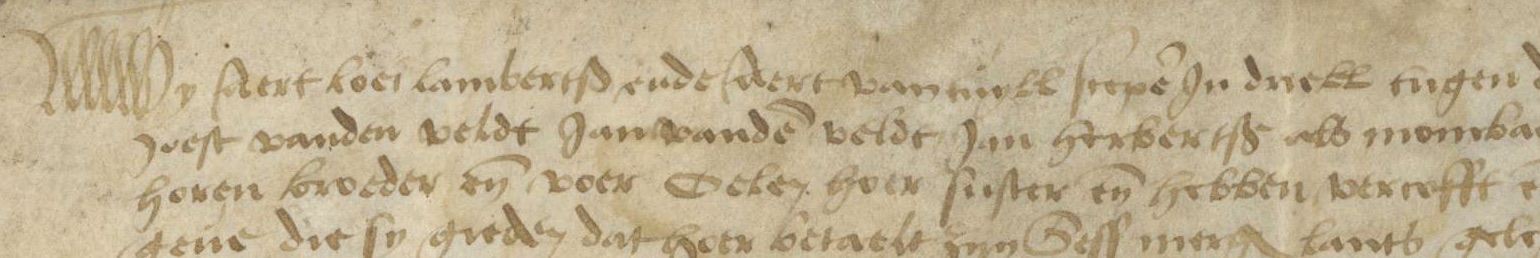 Wy Aert loei lambertß ende Aert van tuyll scepē In driell tugen
Joest vanden veldt Jan vandē veldt Jan herbertß als momba
horen broeder eñ voer Oeley hoer suster eñ hebben vercofft
gene die sy gieden dat hoer betaelt zyn Sess merg lants gele